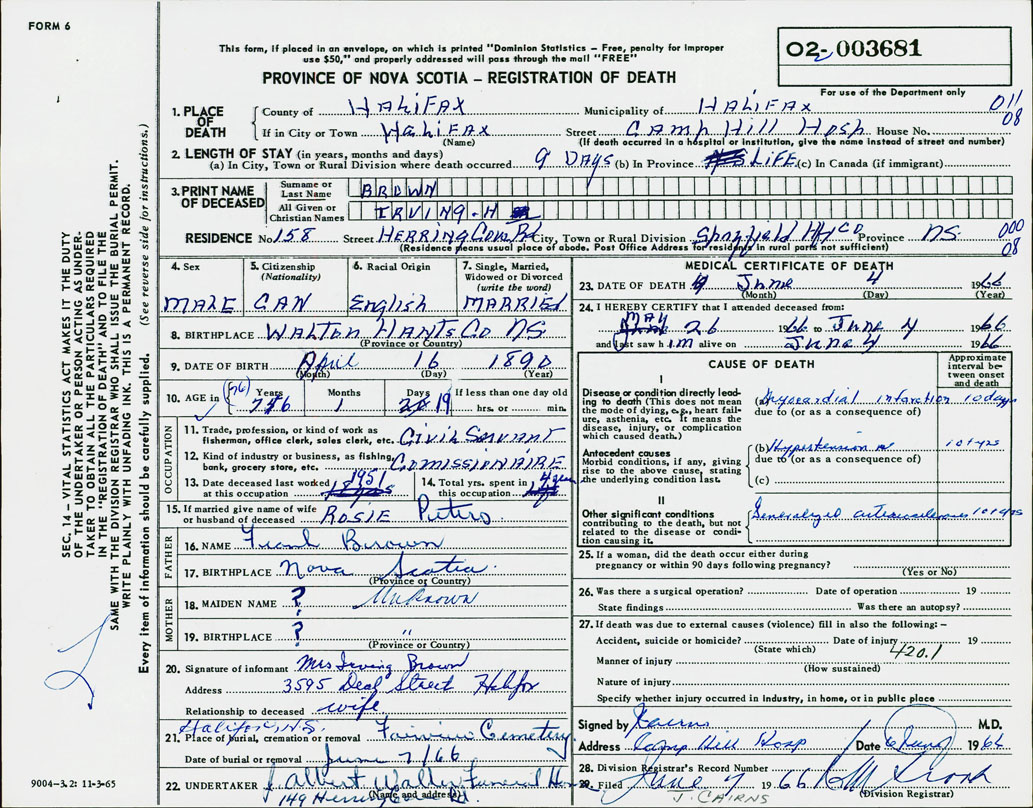 FORM 6
This form, if placed in an envelope, on which is printed "Dominion Statistics – Free, penalty for improper
use $50," and properly addressed will pass through the mail "FREE"
PROVINCE OF NOVA SCOTIA – REGISTRATION OF DEATH
02-003681
2
For use of the Department only
011
08
1. PLACE OF DEATH
County of HALIFAX Municipality of HALIFAX
If in City or Town HALIFAX Street CAMP HILL HOSP House No.
(Name) (If death occurred in a hospital or institution, give the name instead of street and number)
2. LENGTH OF STAY (in years, months and days)
(a) In City, Town or Rural Division where death occurred 9 DAYS (b) In Province LIFE (c) In Canada (if immigrant)
3. PRINT NAME OF DECEASED
Surname or Last Name BROWN
All Given or Christian Names IRVING - H
RESIDENCE No. 158 Street HERRING Cove Rd City, Town or Rural Division Province NS. 000
(Residence means usual place of abode. Post Office Address for residents in rural parts not sufficient) 08
4. Sex MALE
5. Citizenship (Nationality) CAN
6. Racial Origin English
7. Single, Married, Widowed or Divorced (write the word) MARRIED
8. BIRTHPLACE WALTON HANTS Co NS
(Province or Country)
9. DATE OF BIRTH April 16 1890
(Month) (Day) (Year)
10. AGE in (76) Years 76 Months 1 Days 19 If less than one day old
hrs. or min.
OCCUPATION
11. Trade, profession, or kind of work as
fisherman, office clerk, sales clerk, etc. Civil Servant
12. Kind of industry or business, as fishing,
bank, grocery store, etc. COMISSIONAIRE
13. Date deceased last worked at this occupation 1951
14. Total yrs. spent in this occupation 4 years
15. If married give name of wife
or husband of deceased ROSIE Peters
FATHER
16. NAME Frank Brown
17. BIRTHPLACE Nova Scotia
(Province or Country)
MOTHER
18. MAIDEN NAME ? Unknown
19. BIRTHPLACE ? "
(Province or Country)
20. Signature of informant Mrs Irving Brown
Address 3595 Deal Street Halifax
Relationship to deceased wife
Halifax, N.S.
21. Place of burial, cremation or removal Fairview Cemetery
Date of burial or removal June 7/66
22. UNDERTAKER J. Albert Walker Funeral Home
(Name and address)
149 Herring Cove Rd.
MEDICAL CERTIFICATE OF DEATH
23. DATE OF DEATH June 4 1966
(Month) (Day) (Year)
24. I HEREBY CERTIFY that I attended deceased from:
MAY 26 1966 to June 4 1966
and last saw him alive on June 4 1966
CAUSE OF DEATH
Approximate interval between onset and death
I
Disease or condition directly leading to death (This does not mean
the mode of dying, e.g., heart failure, asthenia, etc. It means the
disease, injury, or complication which caused death.)
(a) Myocardial infarction 10 days
due to (or as a consequence of)
Antecedent causes
Morbid conditions, if any, giving
rise to the above cause, stating
the underlying condition last.
(b) Hypertension 10 + yrs
due to (or as a consequence of)
(c)
II
Other significant conditions
contributing to the death, but not
related to the disease or condition causing it.
Generalized arteriosclerosis 10 + yrs
25. If a woman, did the death occur either during
pregnancy or within 90 days following pregnancy?
(Yes or No)
26. Was there a surgical operation? Date of operation 19
State findings Was there an autopsy?
27. If death was due to external causes (violence) fill in also the following: –
Accident, suicide or homicide? Date of injury 19
(State which) 420.1
Manner of injury
(How sustained)
Nature of injury
Specify whether injury occurred in industry, in home, or in public place
Signed by JCairns M.D.
Address Camp Hill Hosp Date 6 June 1966
28. Division Registrar's Record Number
29. Filed June 7 1966
(Division Registrar)
J. CAIRNS
SEC. 14 – VITAL STATISTICS ACT MAKES IT THE DUTY
OF THE UNDERTAKER OR PERSON ACTING AS UNDER-
TAKER TO OBTAIN ALL THE PARTICULARS REQUIRED
IN THE "REGISTRATION OF DEATH" AND TO FILE THE
SAME WITH THE DIVISION REGISTRAR WHO SHALL ISSUE THE BURIAL PERMIT.
WRITE PLAINLY WITH UNFADING INK. THIS IS A PERMANENT RECORD.
Every item of information should be carefully supplied. (See reverse side for instructions.)
9004–3.2: 11-3-65